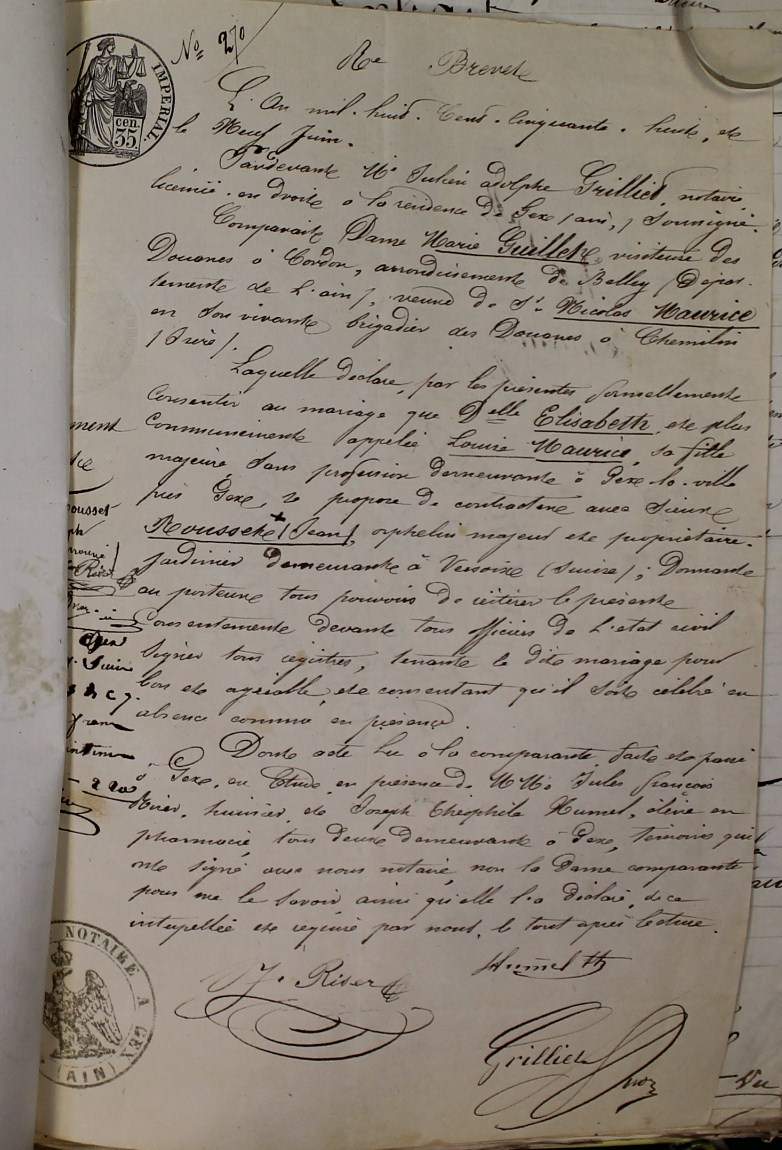 IMPERIAL.
cen.
35
No 270
Re Brevet
L'An mil. huit. Cent. Cinquante. huit, et
le Neuf Juin.
Pardevant Me Julien adolphe Grilliet, notaire
licencié. en droit à la résidence de Gex (ain,) Soussigné.
Comparait Dame Marie Guillet, visiteuse des
Douanes à Cordon, arrondissement de Belley (Dépar-
tement de L'ain), veuve de Sr Nicolas Maurice
en son vivant brigadier des Douanes, à Chimilin
(Isère).
Laquelle déclare, par les présentes formellement
Consentir au mariage que Delle Elisabeth, et plus
Communément appelée Louise Maurice, sa fille
majeure Sans profession demeurant à Gex-la-ville
près Gex, se propose de contracter avec Sieur
Rousset + (Jean), orphelin majeur et propriétaire.
jardinier demeurant à Versoix (Suisse); Donnant
au porteur tous pouvoirs de réitérer le présent
Consentement devant tous officiers de L'état civil
Signer tous registres, tenant le dit mariage pour
bon et agréable, et consentant qu'il soit célébré en
absence comme en présence.
Dont acte Lu à la comparante, fait et passé
à Gex, en Etude, en présence de MM. Jules françois
Rirer, huissier, et Joseph Théophile Humel, élève en
pharmacie, tous deux demeurant à Gex, témoins qui
ont signé avec nous notaire, non la Dame comparante
pour ne le savoir ainsi qu'elle l'a déclaré, de ce
interpellée et requise par nous, le tout après lecture.
J. Rirer
Humel Th
Grilliet
ment
rousset
ph
Gex
Juin
NOTAIRE A GEX
(AIN)